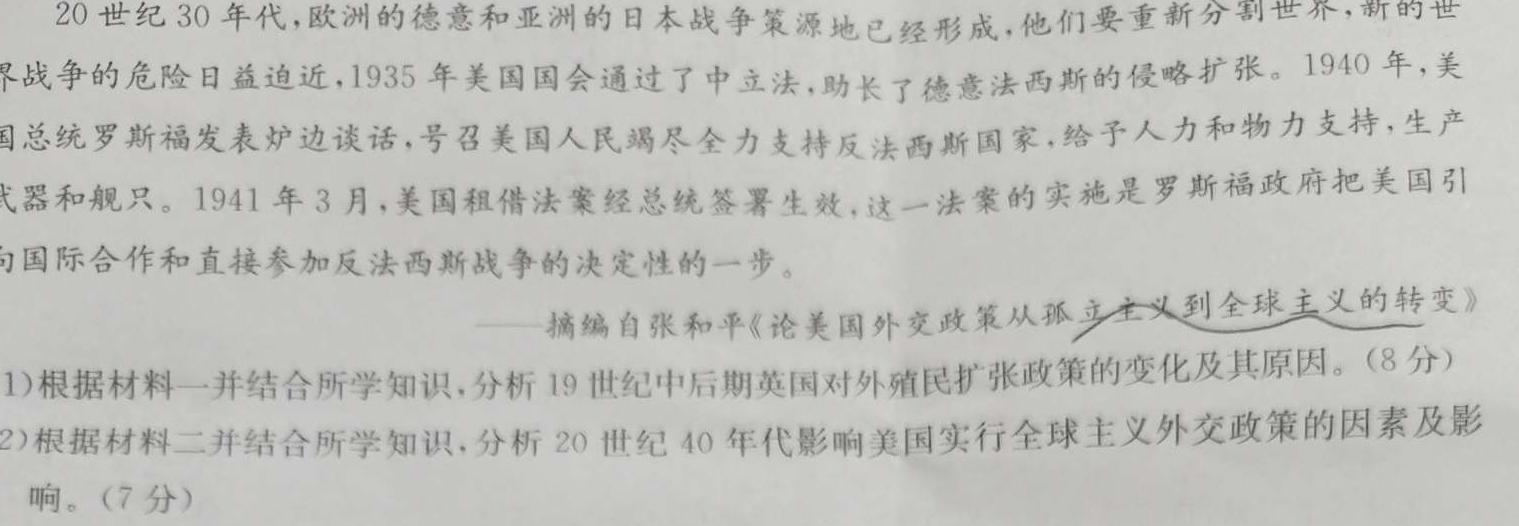 20 世纪 30 年代,欧洲的德意和亚洲的日本战争策源地已经形成,他们要重新分割世界,新的世
界战争的危险日益迫近,1935 年美国国会通过了中立法,助长了德意法西斯的侵略扩张。1940 年,美
国总统罗斯福发表炉边谈话,号召美国人民竭尽全力支持反法西斯国家,给予人力和物力支持,生产
武器和舰只。1941 年 3 月,美国租借法案经总统签署生效,这一法案的实施是罗斯福政府把美国引
向国际合作和直接参加反法西斯战争的决定性的一步。
——摘编自张和平《论美国外交政策从孤立主义到全球主义的转变》
1)根据材料一并结合所学知识,分析 19 世纪中后期英国对外殖民扩张政策的变化及其原因。(8 分)
2)根据材料二并结合所学知识,分析 20 世纪 40 年代影响美国实行全球主义外交政策的因素及影
响。(7 分)